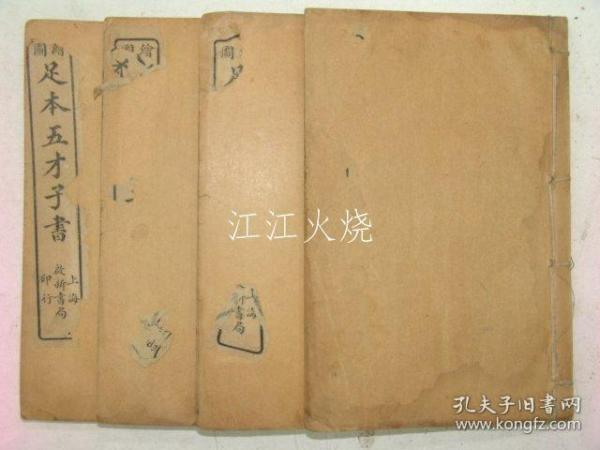 繪圖
足本五才子書
上海
啟新書局
印行
繪
圖
足
上海
書局
江江火烧
孔夫子旧书网
www.kongfz.com